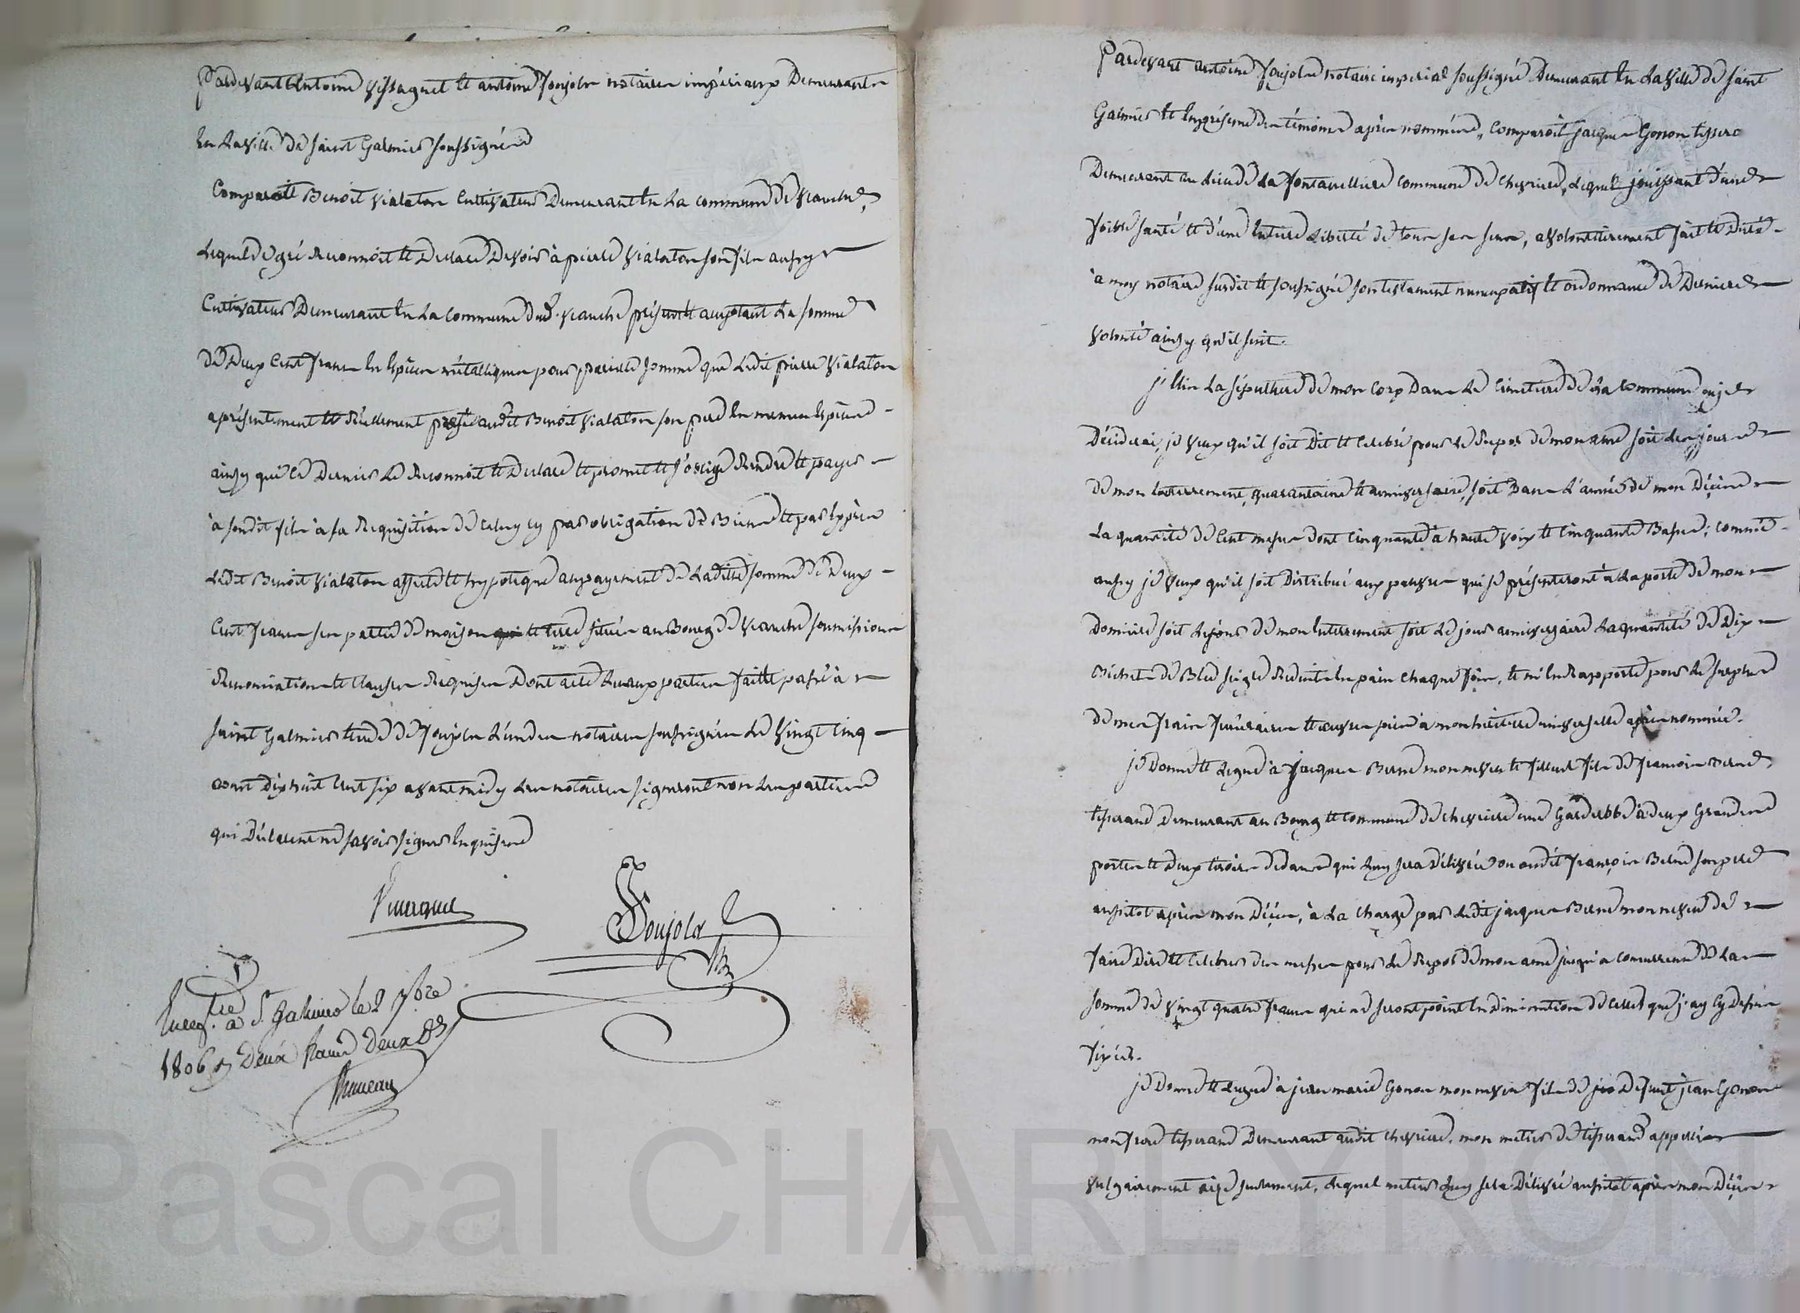 Pardevant Antoine Vissaguet et antoine Poujols notaires impériaux Demeurants
En La Ville De saint Galmier soussignés
Comparoit Benoit Vialaton Cultivateur Demeurant En La commune De Veauche,
Lequel De gré Reconnoit et Declare Devoir à pierre Vialaton son fils aussy
Cultivateur Demeurant En La Commune dud. Veauche présent acceptant La somme
De Deux Cent francs En Espèces métalliques pour pareille somme que Ledit pierre Vialaton
a présentement et Réellement prêté audit Benoit Vialaton son père En memes Espèces
ainsy que Ce Dernier Le Reconnoit et Declare et promet et s'oblige Rendre et payer
à sondit fils à sa Requisition De Celuy cy par obligation De Biens et par Exprès
Ledit Benoit Vialaton affecte et hypoteque au payement De Ladite somme De Deux
Cent francs ses parties De maison et terre situées au Bourg De Veauche soumissions
Renonciations et Clauses Requises Dont acte Lu aux parties fait et passé à
saint Galmier Etude De Poujols L'un Des notaires soussignés Le Vingt Cinq
aout Dix huit Cent six avant midy Les notaires signeront non Les parties
qui Déclarent ne savoir signer Enquises
Poujols
Enreg.tré à S.t Galmier le 2 7bre
1806 Deux francs Deux
Pardevant Antoine Poujols notaire imperial soussigné Demeurant En La Ville De saint
Galmier et En présence Des témoins après nommés, Comparoit Jacques Gonon tisserand
Demeurant au Lieu De La commune De Chevrieres, Lequel jouissant D'une
foible santé et d'une Entiere Liberté De tous ses sens, a volontairement fait et Dicté
à moy notaire susdit et soussigné son testament nuncupatif et ordonnance De Derniere
Volonté ainsy qu'il suit.
j'Elis La sépulture De mon Corp Dans Le Cimetiere De La Commune ou je
Décéderai, je Veux qu'il soit Dit et Célébré pour Le Repos De mon ame soit Les jours
De mon Enterrement, quarantaine et anniversaire, soit Dans L'année De mon Décès
La quantité De Cent messes Dont Cinquante à haute Voix et Cinquante Basses; Comme
aussy je Veux qu'il soit Distribué aux pauvres qui se présenteront à La porte De mon
Domicile soit Le jour De mon Enterrement soit Le jour anniversaire La quantité De Dix
Bichets De Bled seigle Réduits En pain chaque fois, et m'En Rapporte pour Le surplus
De mes frais funéraires et œuvres pies à mon héritiere universelle après nommée.
je Donne et Legue à Jacques Berne mon neveu et filleul fils De François Berne,
tisserand Demeurant au Bourg et Commune De Chevrieres une Garderobbe à Deux Grandes
portes et Deux tiroirs Dedans qui Luy sera Délivrée ou audit François Berne son père
aussitot après mon Décès, à La Charge par Ledit jacques Berne mon neveu De
faire Dire et Célébrer Des messes pour Le Repos De mon ame jusqu'a concurrence De La
somme De Vingt quatre francs qui ne seront point En Diminution De Celles que j'ay Cy Dessus
fixées.
je Donne et Legue à jean marie Gonon mon neveu fils De Défunt jean Gonon
mon frere tisserand Demeurant audit Chevrieres. mon metier De tisserand appelé
Vulgairement, Lequel metier Luy sera Délivré aussitot après mon Décès
Pascal CHARLYRON